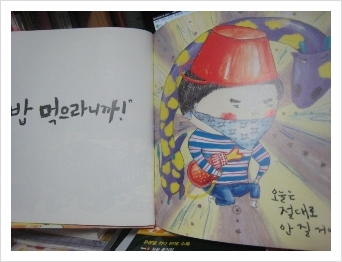 밥 먹으라니까!"
오늘은
절대로
안 질 거야